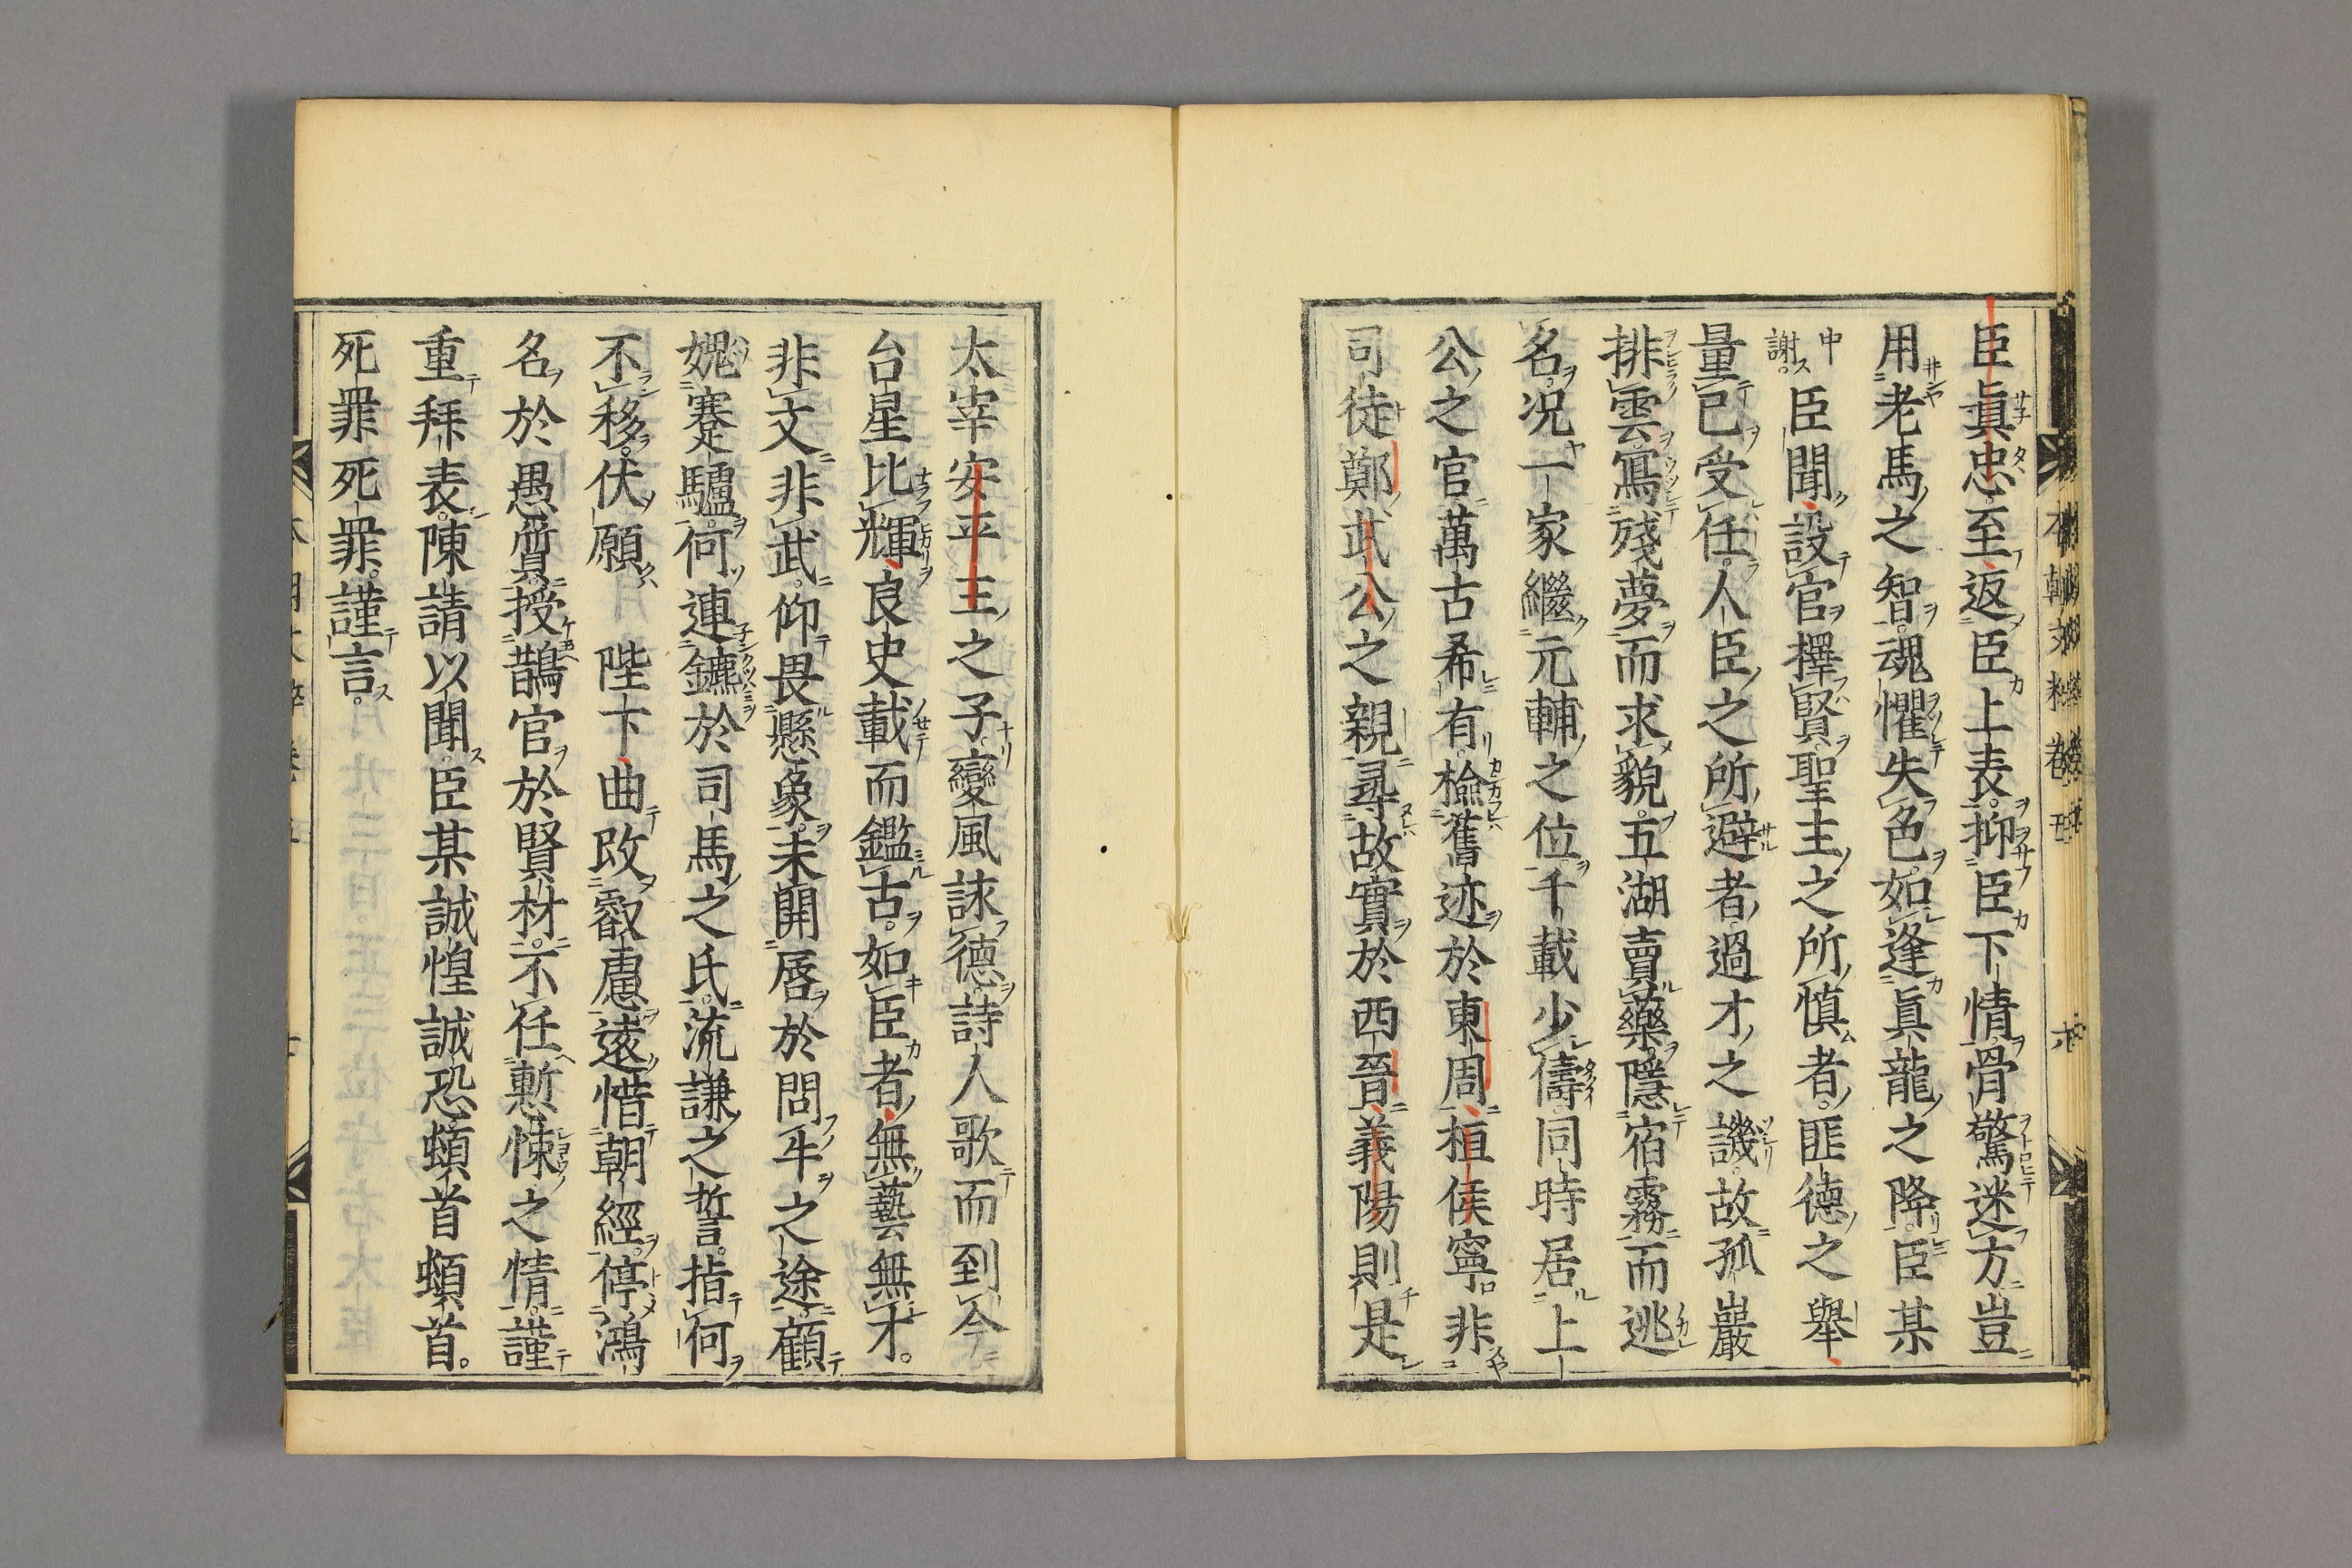 臣眞忠至返臣上表抑臣下情骨驚迷方豈
用老馬之智魂懼失色如逢眞龍之降臣某
中謝臣聞設官擇賢聖主之所慎者匪德之舉
量已受任人臣之所避者過才之譏故孤巖
排雲寫殘夢而求貌五湖賣藥隱宿霧而逃
名况一家繼元輔之位千載少儔同時居上
公之官萬古希有檢舊迹於東周桓侯寧非
司徒鄭武公之親尋故實於西晉義陽則是
太宰安平王之子變風詠德詩人歌而到今
台星比輝良史載而鑑古如臣者無藝無才
非文非武仰畏懸象未開唇於問牛之途顧
媿蹇驢何連鑣於司馬之氏流謙之誓指何
不移伏願 陛下曲改叡慮遠惜朝經停鴻
名於愚質授鵲官於賢材不任慙悚之情謹
重拜表陳請以聞臣某誠惶誠恐頓首頓首
死罪死罪謹言